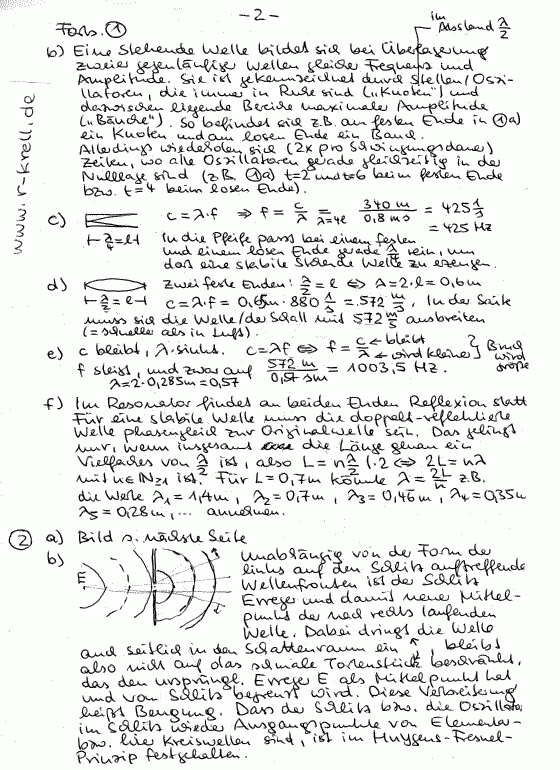 - 2 -
Forts. ①
im Abstand λ/2
b) Eine stehende Welle bildet sich bei Überlagerung
zweier gegenläufiger Wellen gleicher Frequenz und
Amplitude. Sie ist gekennzeichnet durch Stellen/Oszi-
llatoren, die immer in Ruhe sind („Knoten") und
dazwischen liegende Bereiche maximaler Amplitude
(„Bäuche"). So befindet sich z.B. am festen Ende in ①a)
ein Knoten und am losen Ende ein Bauch.
Allerdings wiederholen sich (2x pro Schwingungsdauer)
Zeiten, wo alle Oszillatoren gerade gleichzeitig in der
Nulllage sind (z.B. ①a) t=2 und t=6 beim festen Ende
bzw. t=4 beim losen Ende).
www.r-krell.de
c) c = λ·f ⇒ f = c/λ =(λ=4ℓ) 340 m / 0,8 m s = 425 1/s
= 425 Hz
⊢ λ/4 = ℓ ⊣ In die Pfeife passt bei einem festen
und einem losen Ende gerade λ/4 rein, um
dort eine stabile stehende Welle zu erzeugen.
d) zwei feste Enden: λ/2 = ℓ ⇔ λ = 2·ℓ = 0,6m
⊢ λ/2 = ℓ ⊣ c = λ·f = 0,65m · 880 1/s = 572 m/s. In der Saite
muss sich die Welle/der Schall mit 572 m/s ausbreiten
(= schneller als in Luft).
e) c bleibt, λ sinkt. c = λf ⇔ f = c/λ ← bleibt ← wird kleiner } Bruch wird größer
f steigt, und zwar auf 572 m / 0,57 s m = 1003,5 Hz.
λ = 2·0,285m = 0,57
f) Im Resonator findet an beiden Enden Reflexion statt
Für eine stabile Welle muss die doppelt-reflektierte
Welle phasengleich zur Originalwelle sein. Das gelingt
nur, wenn insgesamt die Länge genau ein
Vielfaches von λ/2 ist, also L = n λ/2 |·2 ⇔ 2L = nλ
mit n∈ℕ≥1 ist. Für L = 0,7m könnte λ = 2L/n z.B.
die Werte λ₁ = 1,4m, λ₂ = 0,7m, λ₃ = 0,46m, λ₄ = 0,35m
λ₅ = 0,28m, ... annehmen.
② a) Bild s. nächste Seite
b) Unabhängig von der Form der
links auf den Schlitz auftreffende
Wellenfronten ist der Schlitz
Erreger und damit neuer Mittel-
punkt der nach rechts laufenden
Welle. Dabei dringt die Welle
E
auch seitlich in den Schattenraum ein, bleibt
also nicht auf das schmale Tortenstück beschränkt,
das den ursprüngl. Erreger E als Mittelpunkt hat
und vom Schlitz begrenzt wird. Diese Verbreiterung
heißt Beugung. Dass der Schlitz bzw. die Oszillato.
im Schlitz wieder Ausgangspunkte von Elementar-
bzw. hier Kreiswellen sind, ist im Huygens-Fresnel-
Prinzip festgehalten.